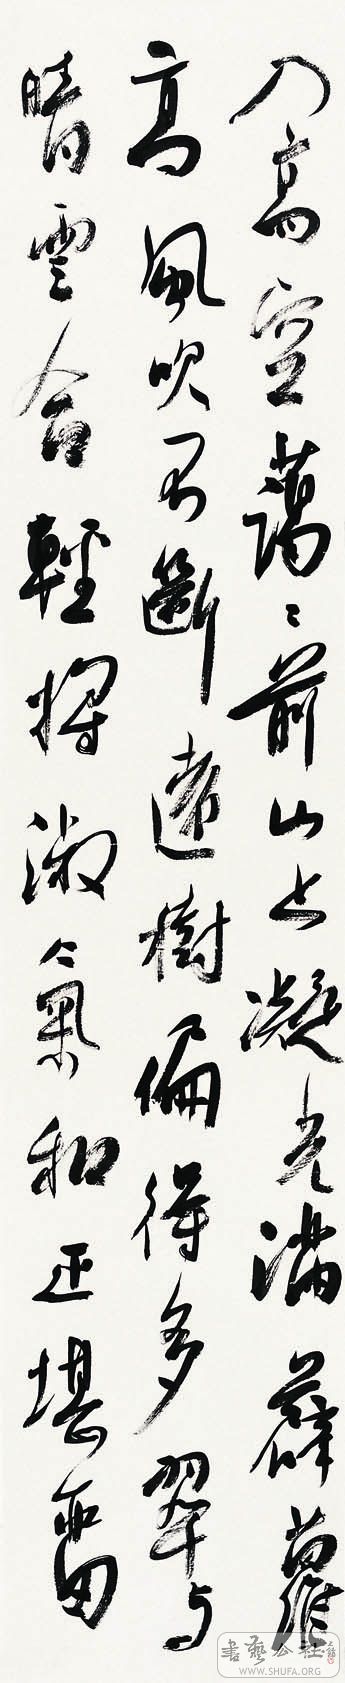 入高空藹〻前山上凝光滿薜蘿
高風吹不斷遠樹偏得多翠与
晴雲合輕將淑氣和正堪留
書藝公社
WWW.SHUFA.ORG